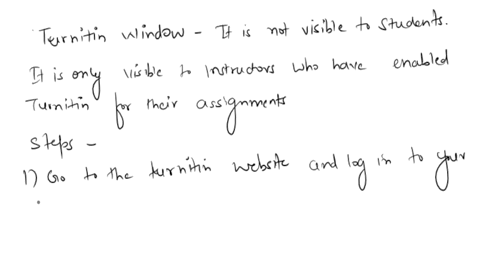 Turnitin window - It is not visible to students.
It is only visible to instructors who have enabled
Turnitin for their assignments
Steps -
1) Go to the turnitin website and log in to your